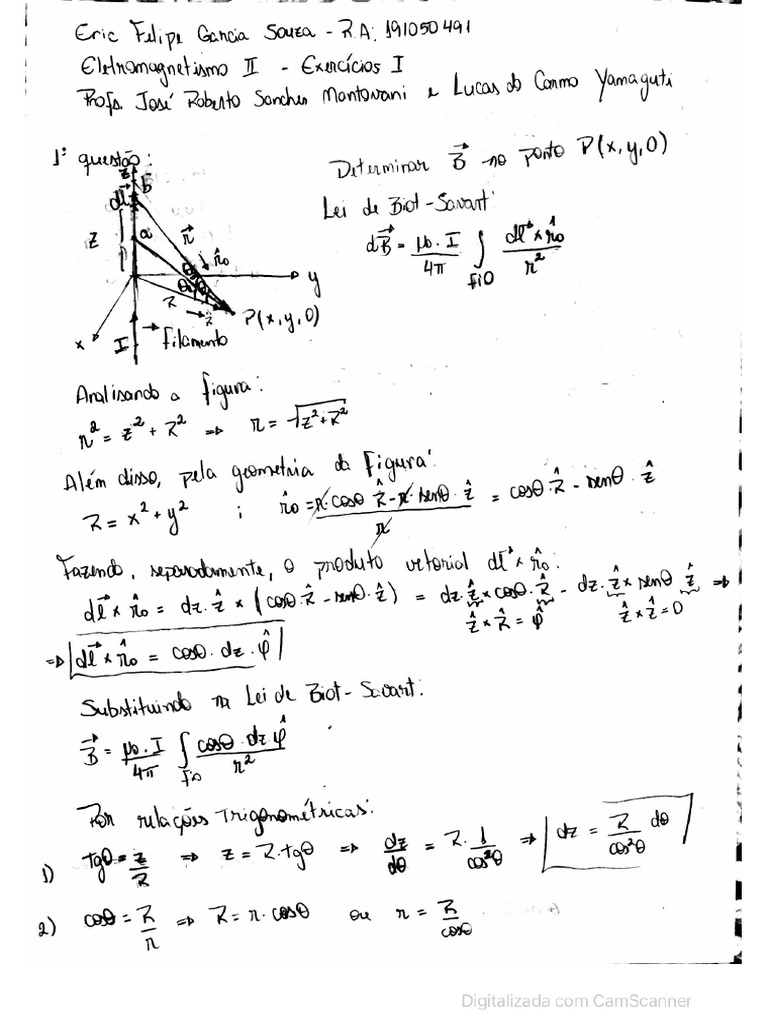 Eric Felipe Garcia Souza - R.A: 191050491
Eletromagnetismo II - Exercícios I
Profs. José Roberto Sanches Mantovani e Lucas do Carmo Yamaguti
1ª questão:
Determinar B⃗ no ponto P(x,y,0)
Lei de Biot-Savart:
dB⃗ = μ₀.I/4π ∫fio dl⃗ × r̂₀/r²
z
b
dl⃗
z
a
r⃗
r̂₀
θ
R
y
P(x,y,0)
x
I
Filamento
Analisando a figura:
r² = z² + R² => r = √(z² + R²)
Além disso, pela geometria da figura:
R = x² + y² ; r̂₀ = (r.cosθ R̂ - r.senθ.ẑ)/r = cosθ.R̂ - senθ.ẑ
Fazendo, separadamente, o produto vetorial dl⃗ × r̂₀:
dl⃗ × r̂₀ = dz.ẑ × (cosθ.R̂ - senθ.ẑ) = dz.ẑ × cosθ.R̂ - dz.ẑ × senθ ẑ =>
ẑ × R̂ = φ̂ ẑ × ẑ = 0
=> dl⃗ × r̂₀ = cosθ.dz.φ̂
Substituindo na Lei de Biot-Savart:
B⃗ = μ₀.I/4π ∫fio cosθ.dz φ̂/r²
Por relações Trigonométricas:
1) tgθ = z/R => z = R.tgθ => dz/dθ = R.1/cos²θ => dz = R/cos²θ dθ
2) cosθ = R/r => R = r.cosθ ou r = R/cosθ
Digitalizada com CamScanner